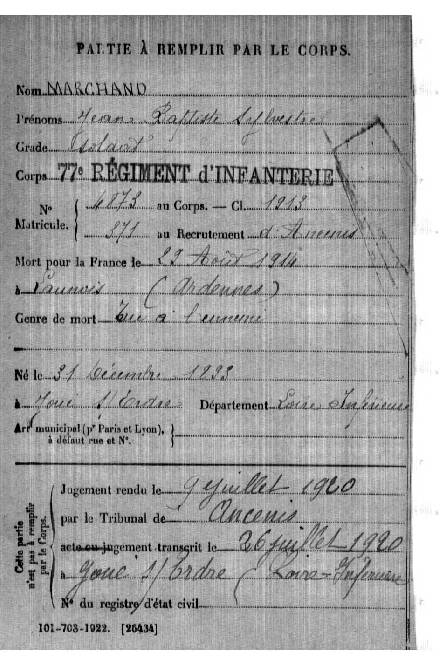 PARTIE À REMPLIR PAR LE CORPS.
Nom MARCHAND
Prénoms Jean Baptiste Sylvestre
Grade Soldat
Corps 77e RÉGIMENT d'INFANTERIE
N° Matricule. { 4873 au Corps. — Cl. 1913
871 au Recrutement d'Ancenis
Mort pour la France le 29 Août 1914
à Launois (Ardennes)
Genre de mort Tué à l'ennemi
Né le 31 Décembre 1893
à Joué s/Erdre Département Loire Inférieure
Arrt municipal (pr Paris et Lyon), à défaut rue et N°. }
Cette partie n'est pas à remplir par le Corps.
Jugement rendu le 9 juillet 1920
par le Tribunal de Ancenis
acte ou jugement transcrit le 26 juillet 1920
à Joué s/Erdre (Loire-Inférieure
N° du registre d'état civil
101-703-1922. [26434]